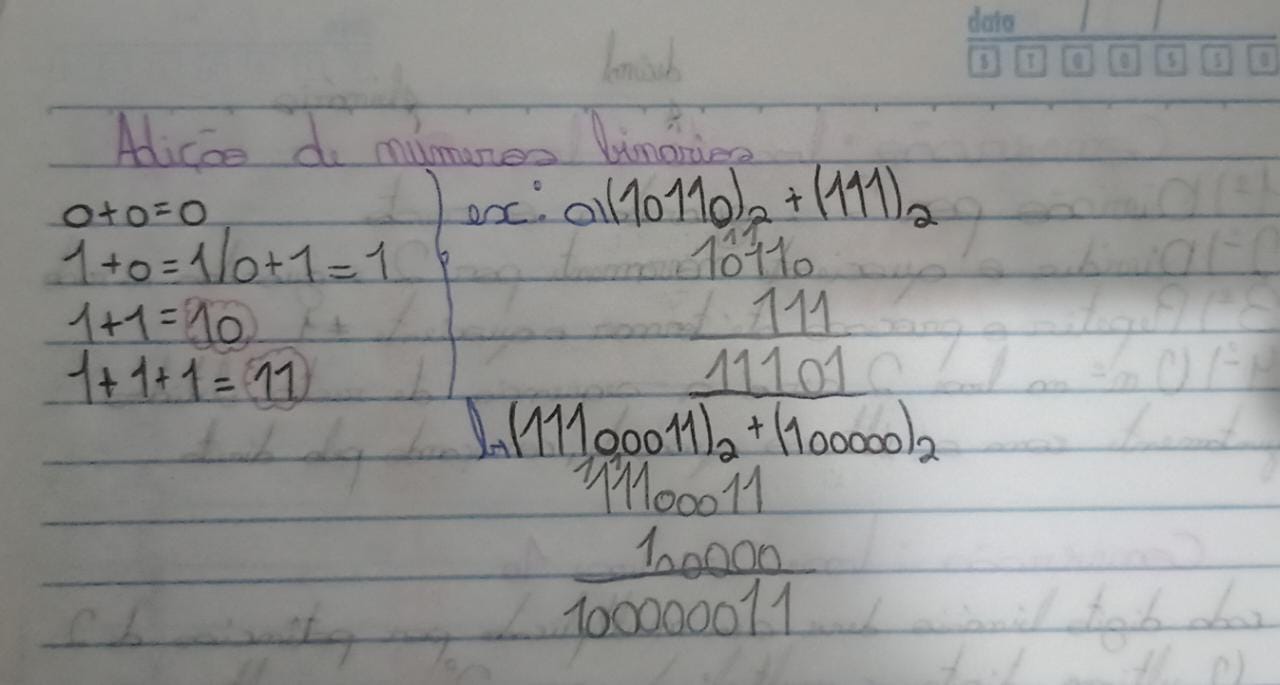 data / /
S T Q Q S S D
Adição de números binários
0+0=0
1+0=1/0+1=1
1+1=10
1+1+1=11
ex: a)(10110)₂+(111)₂
11
10110
111
11101
b)(11100011)₂+(100000)₂
111
11100011
100000
100000011